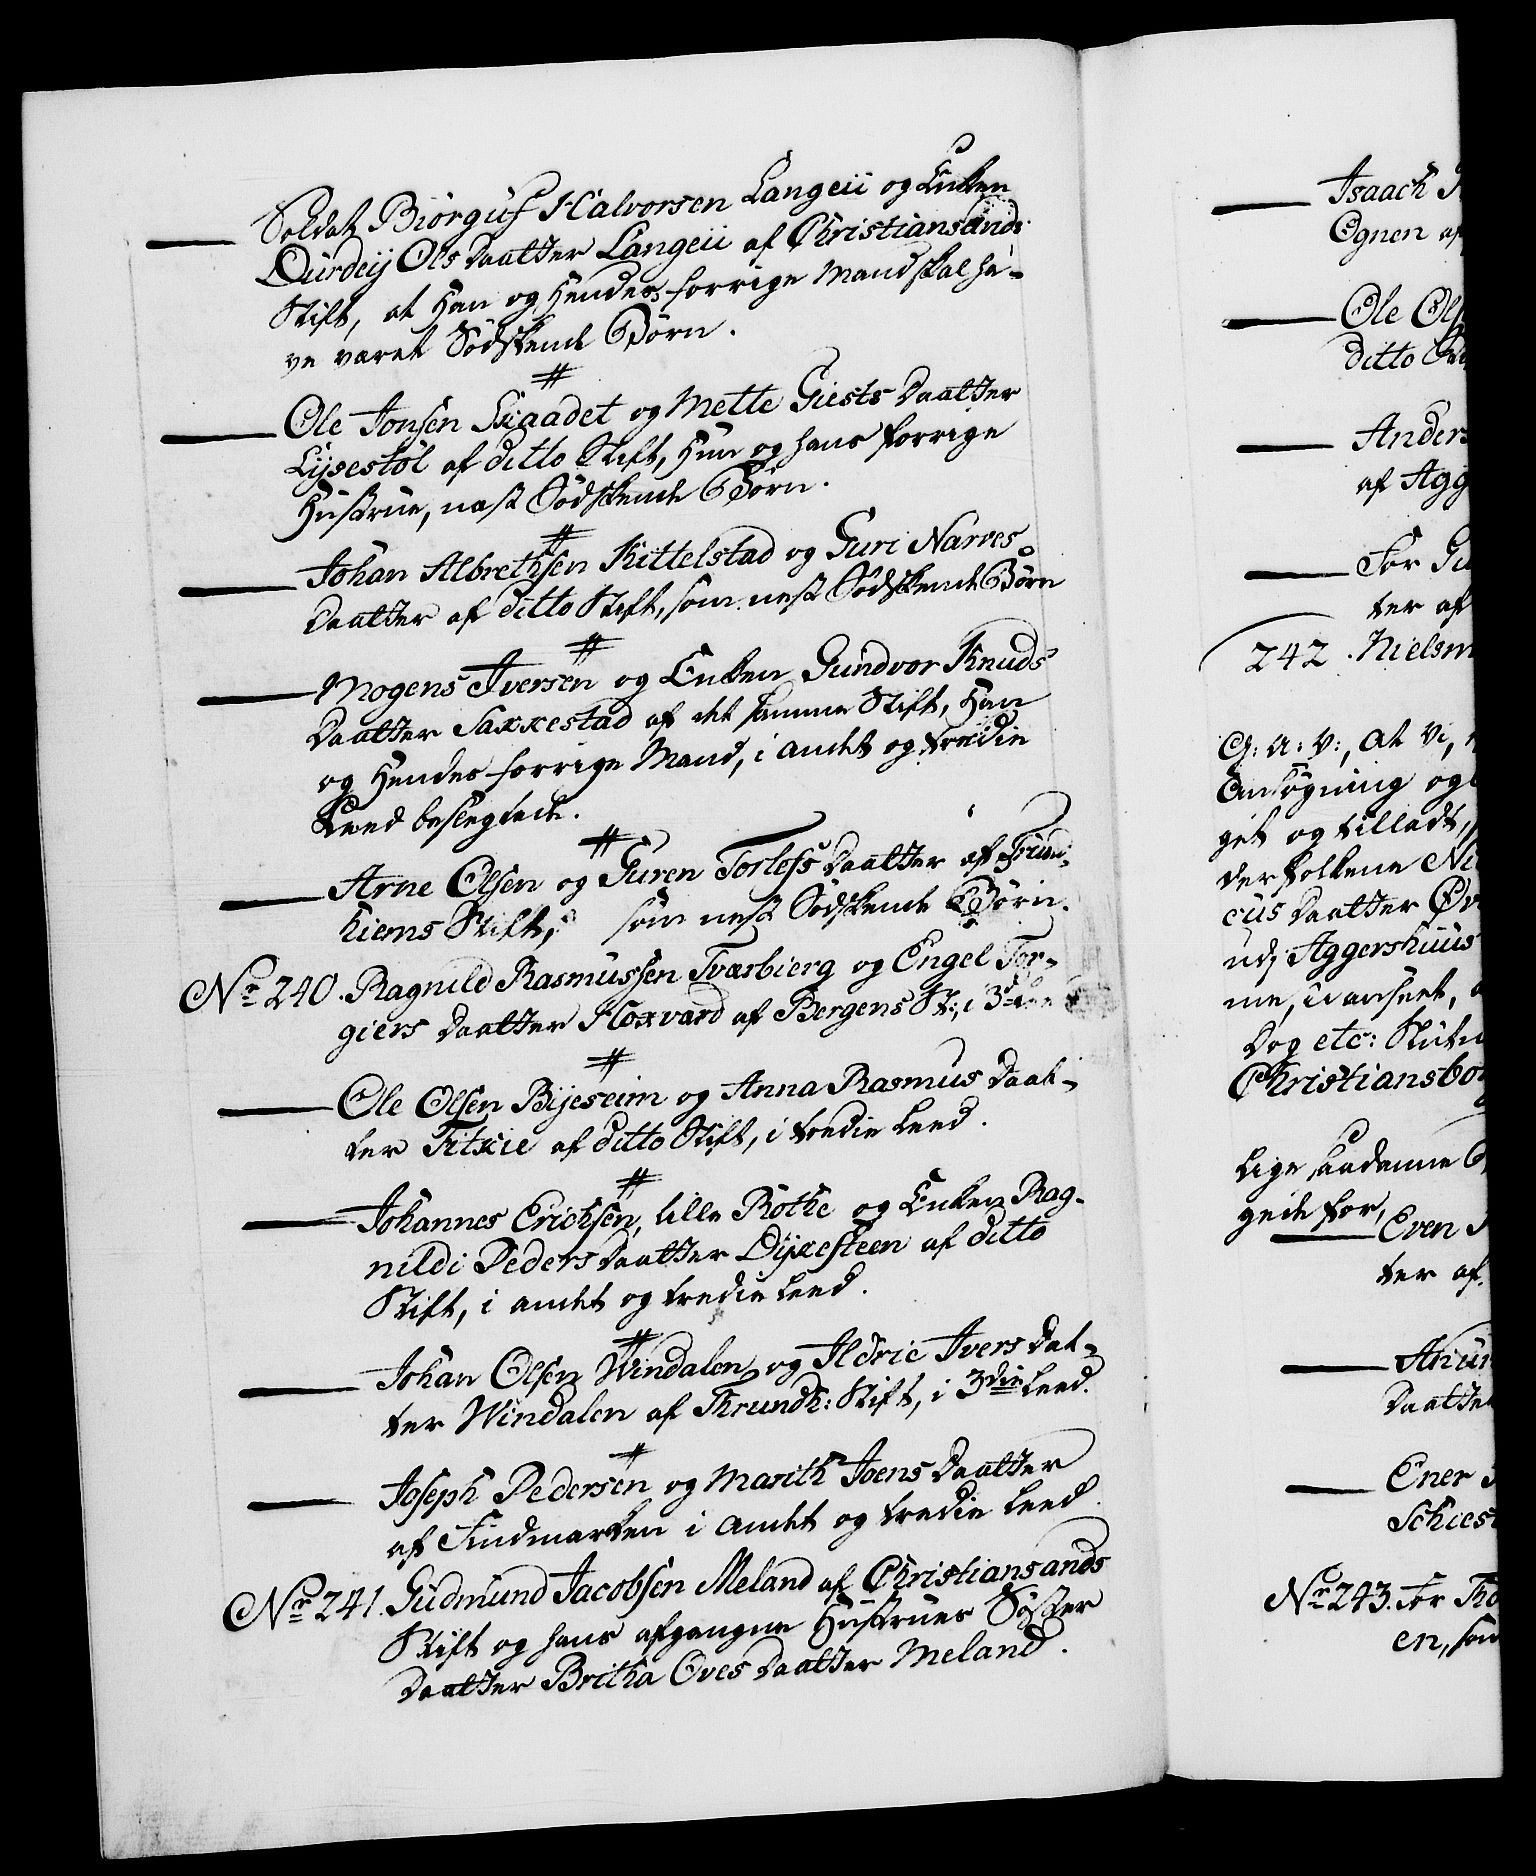 — Soldat Biörguf Halvorsen Langeii og Enken
Durdeij Ols Daatter Langeii af Christiansands
Stift, at Han og Hendes forrige Mand skal ha-
ve været Södskende Börn.
#
— Ole Jonsen Skaadet og Mette Giests Daatter
Lysestöl af ditto Stift, Hun og hans forrige
Hustrue, næst Södskende Börn.
#
— Johan Albrethsen Kittelstad og Guri Narves
Daatter af ditto Stift, som næst Södskende Börn
#
— Mogens Iversen og Enken Gundvor Knuds
Daatter Saxxestad af det samme Stift, Han
og Hendes forrige Mand, i andet og tredie
Leed beslegtede.
#
— Arne Olsen og Guren Torlefs Daatter af Trund-
hiems Stift, som næst Södskende Börn.
No 240. Ragnild Rasmussen Tværbierg og Engel Tor-
giers Daatter Hoxvard af Bergens St:, i 3die
#
— Ole Olsen Bijeseim og Anna Rasmus Daat-
ter Titxie af ditto Stift, i tredie Leed.
#
— Johannes Erichsen, lille Röthe og Enken Rag-
nildi Peders Daatter Dijxesteen af ditto
Stift, i andet og tredie Leed.
#
— Johan Olsen Windalen og Ildrie Ivers Dat-
ter Windalen af Thrundh: Stift, i 3die Leed.
#
— Joseph Pedersen og Marith Joens Daatter
af Findmarken i andet og tredie Leed.
No 241. Gudmund Jacobsen Meland af Christiansands
Stift og hans afgangne Hustrues Söster
Daatter Britha Oves Daatter Meland.
— Isaach
Egnen af
— Ole Ols
ditto
— Anders
af Agg
— Tor
ter af
242. Niels
G: A: V:, at Vi,
Ansögning og
get og tilladt,
derfolkene
cus Daatter
udj Aggershuus
me, u-anseet,
Dog etc: Skulu
Christiansbor
Lige saadanne
gede for,
— Even
ter af
— Anun
Daatter
— Ener
Schies
No 243. Tor
en, som